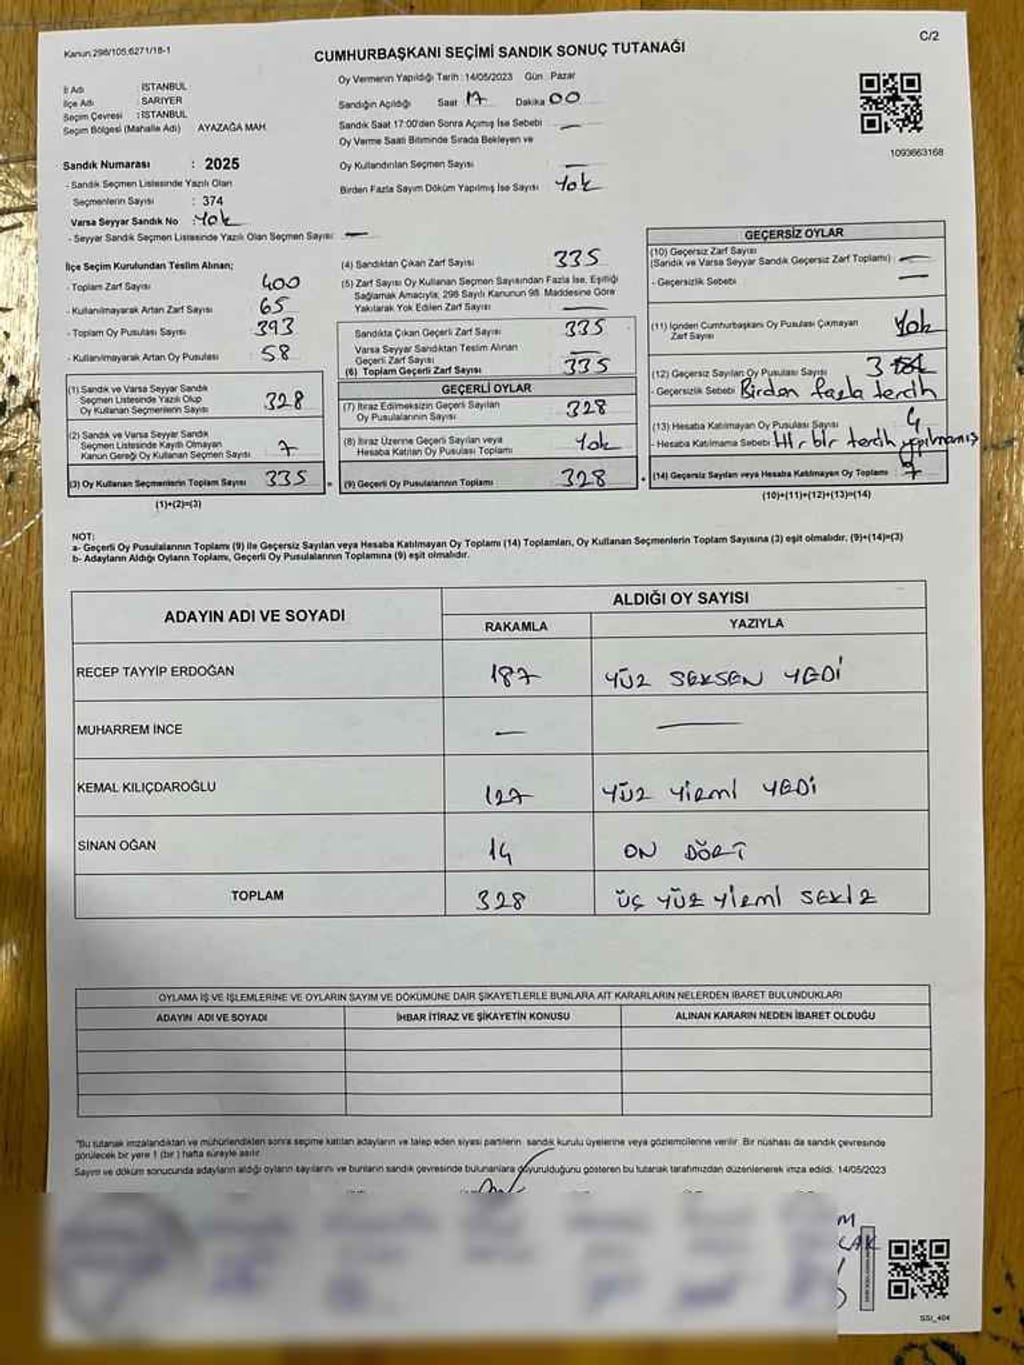 Kanun 298/105,6271/18-1
C/2
CUMHURBAŞKANI SEÇİMİ SANDIK SONUÇ TUTANAĞI
İl Adı : İSTANBUL
İlçe Adı : SARIYER
Seçim Çevresi : İSTANBUL
Seçim Bölgesi (Mahalle Adı) AYAZAĞA MAH.
Sandık Numarası : 2025
- Sandık Seçmen Listesinde Yazılı Olan
Seçmenlerin Sayısı : 374
Varsa Seyyar Sandık No : Yok
- Seyyar Sandık Seçmen Listesinde Yazılı Olan Seçmen Sayısı: —
Oy Vermenin Yapıldığı Tarih : 14/05/2023 Gün : Pazar
Sandığın Açıldığı Saat 17 Dakika 00
Sandık Saat 17:00'den Sonra Açımış İse Sebebi —
Oy Verme Saati Bitiminde Sırada Bekleyen ve
Oy Kullandırılan Seçmen Sayısı —
Birden Fazla Sayım Döküm Yapılmış İse Sayısı Yok
1093663168
İlçe Seçim Kurulundan Teslim Alınan;
- Toplam Zarf Sayısı 400
- Kullanılmayarak Artan Zarf Sayısı 65
- Toplam Oy Pusulası Sayısı 393
- Kullanılmayarak Artan Oy Pusulası 58
(1) Sandık ve Varsa Seyyar Sandık
Seçmen Listesinde Yazılı Olup
Oy Kullanan Seçmenlerin Sayısı 328
(2) Sandık ve Varsa Seyyar Sandık
Seçmen Listesinde Kayıtlı Olmayan
Kanun Gereği Oy Kullanan Seçmen Sayısı 7
(3) Oy Kullanan Seçmenlerin Toplam Sayısı 335
(1)+(2)=(3)
(4) Sandıktan Çıkan Zarf Sayısı 335
(5) Zarf Sayısı Oy Kullanan Seçmen Sayısından Fazla İse, Eşitliği
Sağlamak Amacıyla; 298 Sayılı Kanunun 98. Maddesine Göre
Yakılarak Yok Edilen Zarf Sayısı —
Sandıkta Çıkan Geçerli Zarf Sayısı 335
Varsa Seyyar Sandıktan Teslim Alınan
Geçerli Zarf Sayısı —
(6) Toplam Geçerli Zarf Sayısı 335
GEÇERLİ OYLAR
(7) İtiraz Edilmeksizin Geçerli Sayılan
Oy Pusulalarının Sayısı 328
(8) İtiraz Üzerine Geçerli Sayılan veya
Hesaba Katılan Oy Pusulası Toplamı Yok
(9) Geçerli Oy Pusulalarının Toplamı 328
GEÇERSİZ OYLAR
(10) Geçersiz Zarf Sayısı
(Sandık ve Varsa Seyyar Sandık Geçersiz Zarf Toplamı) —
- Geçersizlik Sebebi —
(11) İçinden Cumhurbaşkanı Oy Pusulası Çıkmayan
Zarf Sayısı Yok
(12) Geçersiz Sayılan Oy Pusulası Sayısı 3
- Geçersizlik Sebebi Birden fazla tercih
(13) Hesaba Katılmayan Oy Pusulası Sayısı 4
- Hesaba Katılmama Sebebi Hiç bir tercih yapılmamış
(14) Geçersiz Sayılan veya Hesaba Katılmayan Oy Toplamı 7
(10)+(11)+(12)+(13)=(14)
NOT:
a- Geçerli Oy Pusulalarının Toplamı (9) ile Geçersiz Sayılan veya Hesaba Katılmayan Oy Toplamı (14) Toplamları, Oy Kullanan Seçmenlerin Toplam Sayısına (3) eşit olmalıdır. (9)+(14)=(3)
b- Adayların Aldığı Oyların Toplamı, Geçerli Oy Pusulalarının Toplamına (9) eşit olmalıdır.
ADAYIN ADI VE SOYADI
ALDIĞI OY SAYISI
RAKAMLA YAZIYLA
RECEP TAYYİP ERDOĞAN 187 YÜZ SEKSEN YEDİ
MUHARREM İNCE — —
KEMAL KILIÇDAROĞLU 127 YÜZ YİRMİ YEDİ
SİNAN OĞAN 14 ON DÖRT
TOPLAM 328 ÜÇ YÜZ YİRMİ SEKİZ
OYLAMA İŞ VE İŞLEMLERİNE VE OYLARIN SAYIM VE DÖKÜMÜNE DAİR ŞİKAYETLERLE BUNLARA AİT KARARLARIN NELERDEN İBARET BULUNDUKLARI
ADAYIN ADI VE SOYADI İHBAR İTİRAZ VE ŞİKAYETİN KONUSU ALINAN KARARIN NEDEN İBARET OLDUĞU
"Bu tutanak imzalandıktan ve mühürlendikten sonra seçime katılan adayların ve talep eden siyasi partilerin sandık kurulu üyelerine veya gözlemcilerine verilir. Bir nüshası da sandık çevresinde
görülecek bir yere 1 (bir) hafta süreyle asılır.
Sayım ve döküm sonucunda adayların aldığı oyların sayılarını ve bunların sandık çevresinde bulunanlara duyurulduğunu gösteren bu tutanak tarafımızdan düzenlenerek imza edildi. 14/05/2023
SSİ_404